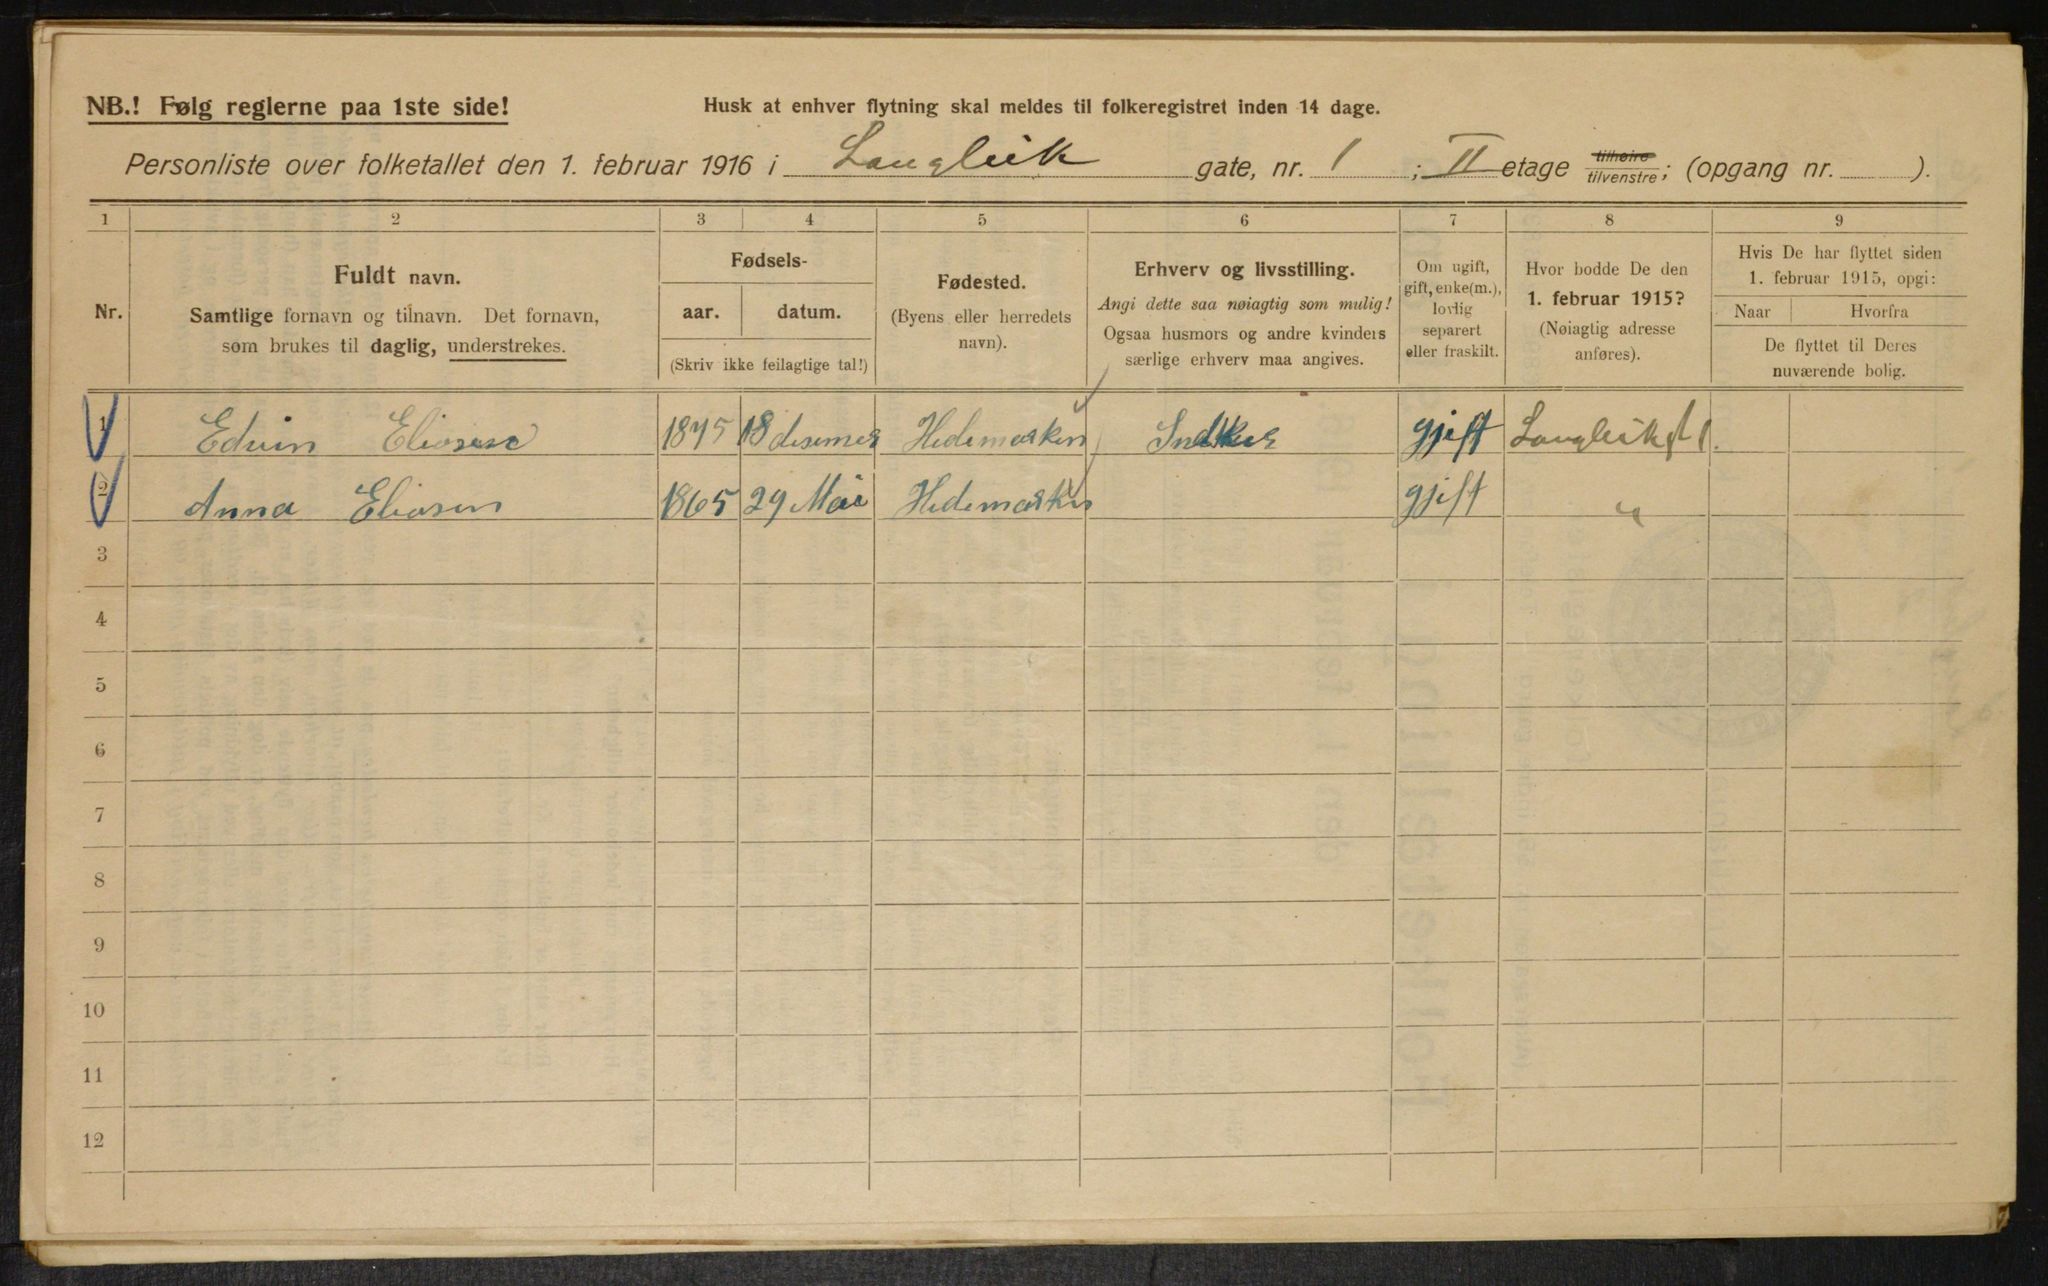 NB.! Følg reglerne paa 1ste side!
Husk at enhver flytning skal meldes til folkeregistret inden 14 dage.
Personliste over folketallet den 1. februar 1916 i Langleik gate, nr. 1 ; II etage tilhøire tilvenstre; (opgang nr. ).
1 2 3 4 5 6 7 8 9
Nr.
Fuldt navn.
Samtlige fornavn og tilnavn. Det fornavn,
som brukes til daglig, understrekes.
Fødsels-
aar. datum.
(Skriv ikke feilagtige tal!)
Fødested.
(Byens eller herredets
navn).
Erhverv og livsstilling.
Angi dette saa nøiagtig som mulig!
Ogsaa husmors og andre kvinders
særlige erhverv maa angives.
Om ugift,
gift, enke(m.),
lovlig
separert
eller fraskilt.
Hvor bodde De den
1. februar 1915?
(Nøiagtig adresse
anføres).
Hvis De har flyttet siden
1. februar 1915, opgi:
Naar Hvorfra
De flyttet til Deres
nuværende bolig.
1 Edvin Eliasen 1875 18 desemer Hedemarken gjift Langleikgt 1.
2 Anna Eliasen 1865 29 Mai Hedemarken gjift "
3
4
5
6
7
8
9
10
11
12